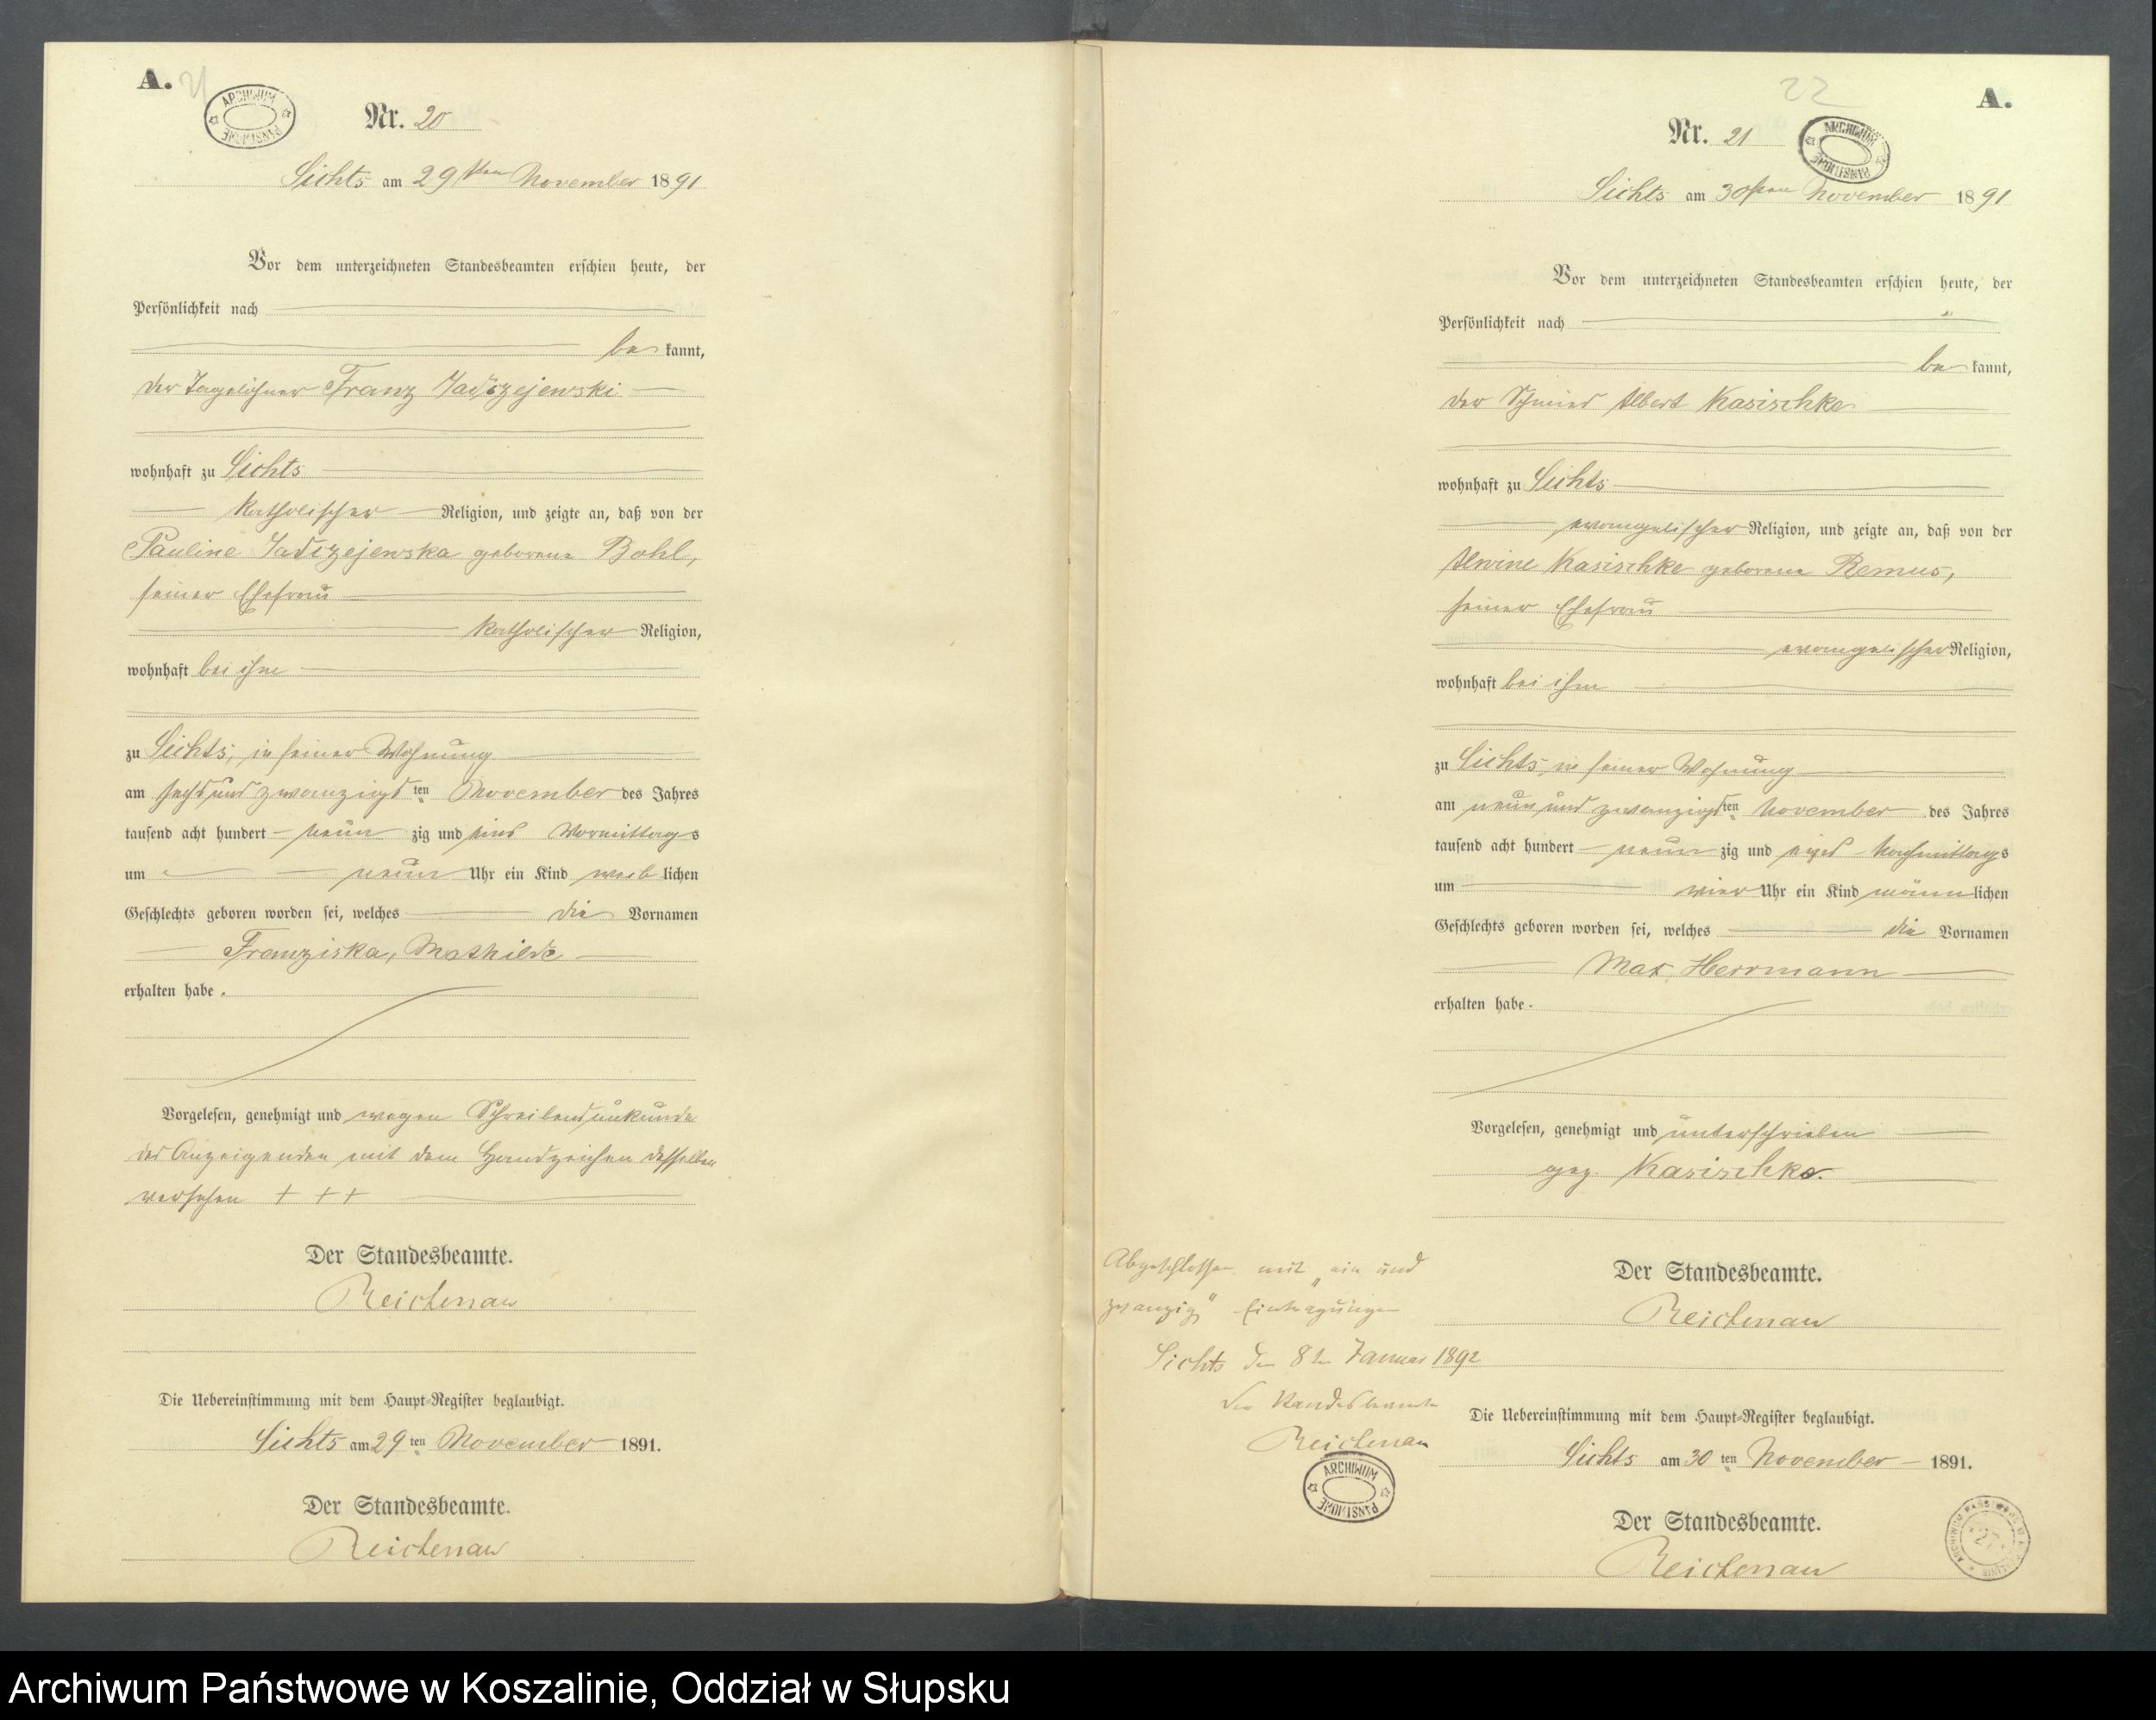 A.
Nr. 20
ARCHIWUM PAŃSTWOWE
Lichts am 29ten November 1891
Vor dem unterzeichneten Standesbeamten erschien heute, der
Persönlichkeit nach
be kannt,
der Tagelöhner Franz
wohnhaft zu Lichts
katholischer Religion, und zeigte an, daß von der
Pauline geborene Bohl,
seiner Ehefrau
katholischer Religion,
wohnhaft bei ihm
zu Lichts, in seiner Wohnung
am sechsundzwanzigsten November des Jahres
tausend acht hundert neun zig und eins Vormittags
um neun Uhr ein Kind weib lichen
Geschlechts geboren worden sei, welches die Vornamen
Franziska, Mathilde
erhalten habe.
Vorgelesen, genehmigt und wegen Schreibensunkunde
des Anzeigenden mit dem Handzeichen desselben
versehen + + +
Der Standesbeamte.
Reichenau
Die Uebereinstimmung mit dem Haupt-Register beglaubigt.
Lichts am 29 ten November 1891.
Der Standesbeamte.
Reichenau
22
A.
Nr. 21
ARCHIWUM PAŃSTWOWE
Lichts am 30ten November 1891
Vor dem unterzeichneten Standesbeamten erschien heute, der
Persönlichkeit nach
be kannt,
der Schmied Albert Kasischke
wohnhaft zu Lichts
evangelischer Religion, und zeigte an, daß von der
Alwine Kasischke geborene Remus,
seiner Ehefrau
evangelischer Religion,
wohnhaft bei ihm
zu Lichts, in seiner Wohnung
am neunundzwanzigsten November des Jahres
tausend acht hundert neun zig und eins Nachmittags
um vier Uhr ein Kind männlichen
Geschlechts geboren worden sei, welches die Vornamen
Max Herrmann
erhalten habe.
Vorgelesen, genehmigt und unterschrieben
gez. Kasischke.
Der Standesbeamte.
Reichenau
Abgeschlossen mit „ein und
zwanzig" Eintragungen
Lichts den 8ten Januar 1892
Der Standesbeamte
Reichenau
ARCHIWUM PAŃSTWOWE
Die Uebereinstimmung mit dem Haupt-Register beglaubigt.
Lichts am 30 ten November 1891.
Der Standesbeamte.
Reichenau
Archiwum Państwowe w Koszalinie, Oddział w Słupsku